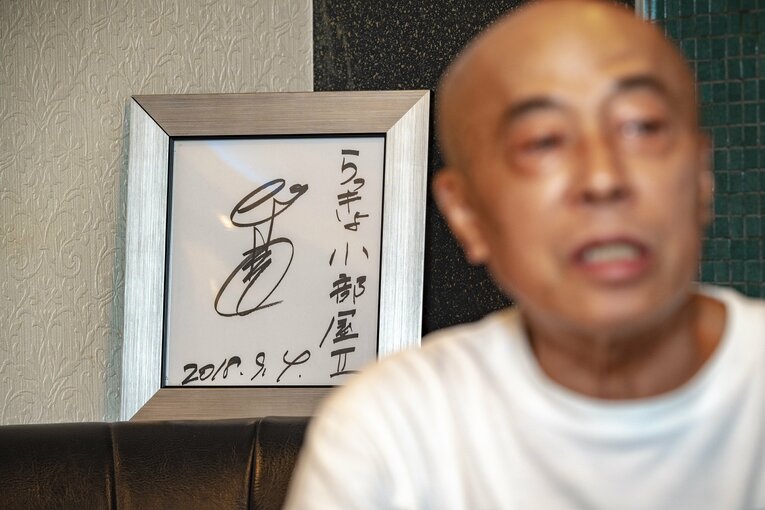 らっきょ小部屋II
2018.9.4.